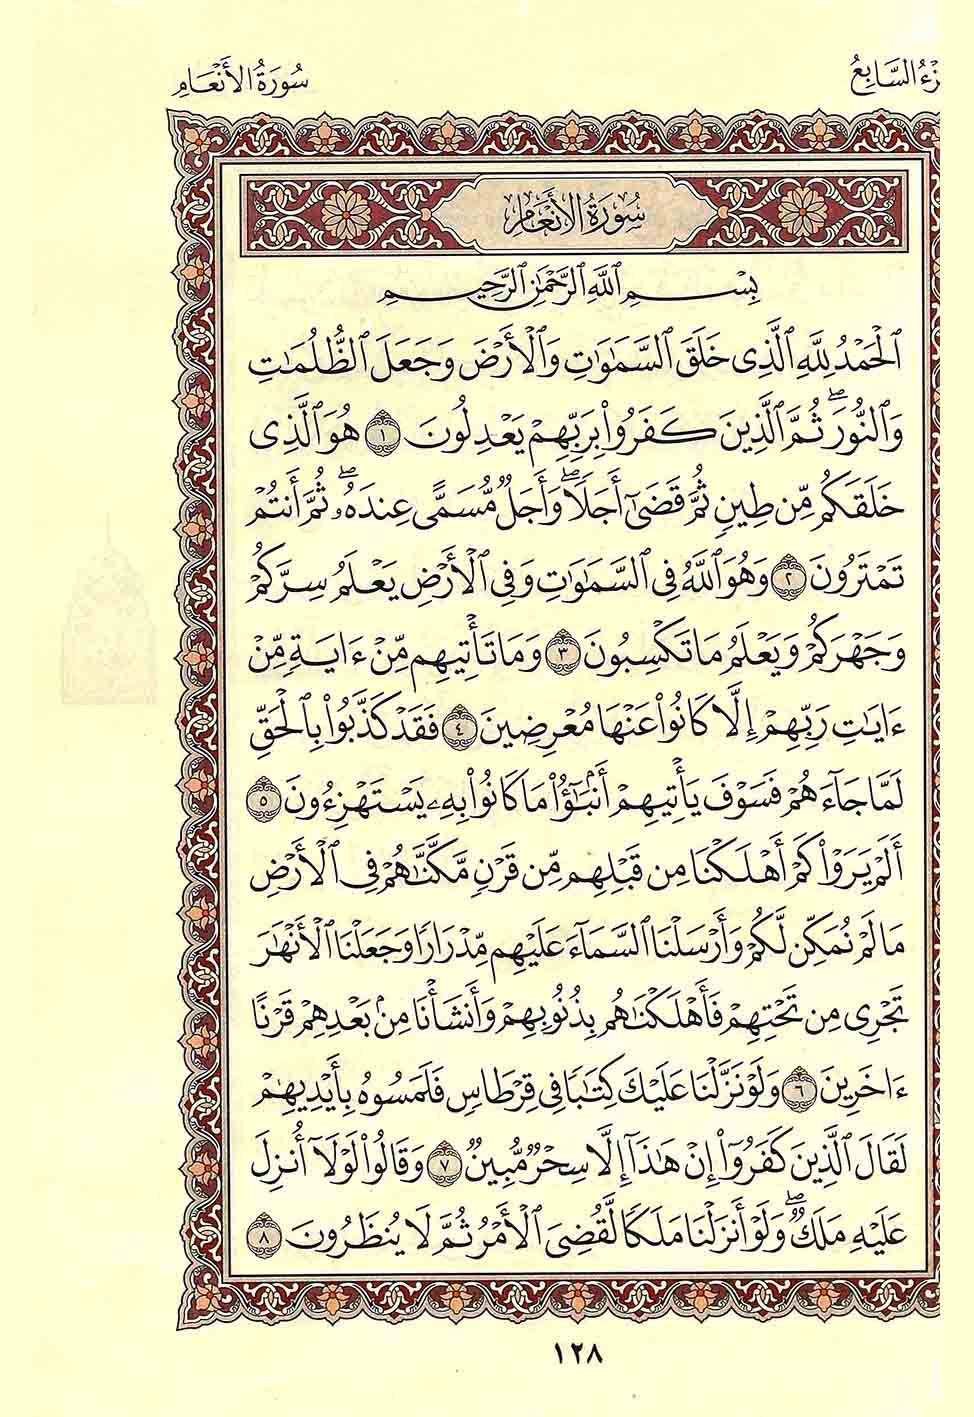 زء السابع
سُورَةُ الأَنْعَامِ
سُورَةُ الأَنْعَامِ
بِسْمِ ٱللَّهِ ٱلرَّحْمَٰنِ ٱلرَّحِيمِ
ٱلْحَمْدُ لِلَّهِ ٱلَّذِى خَلَقَ ٱلسَّمَٰوَٰتِ وَٱلْأَرْضَ وَجَعَلَ ٱلظُّلُمَٰتِ
وَٱلنُّورَ ۖ ثُمَّ ٱلَّذِينَ كَفَرُوا۟ بِرَبِّهِمْ يَعْدِلُونَ ١ هُوَ ٱلَّذِى
خَلَقَكُم مِّن طِينٍ ثُمَّ قَضَىٰٓ أَجَلًا ۖ وَأَجَلٌ مُّسَمًّى عِندَهُۥ ۖ ثُمَّ أَنتُمْ
تَمْتَرُونَ ٢ وَهُوَ ٱللَّهُ فِى ٱلسَّمَٰوَٰتِ وَفِى ٱلْأَرْضِ يَعْلَمُ سِرَّكُمْ
وَجَهْرَكُمْ وَيَعْلَمُ مَا تَكْسِبُونَ ٣ وَمَا تَأْتِيهِم مِّنْ ءَايَةٍ مِّنْ
ءَايَٰتِ رَبِّهِمْ إِلَّا كَانُوا۟ عَنْهَا مُعْرِضِينَ ٤ فَقَدْ كَذَّبُوا۟ بِٱلْحَقِّ
لَمَّا جَآءَهُمْ فَسَوْفَ يَأْتِيهِمْ أَنۢبَٰٓؤُا۟ مَا كَانُوا۟ بِهِۦ يَسْتَهْزِءُونَ ٥
أَلَمْ يَرَوْا۟ كَمْ أَهْلَكْنَا مِن قَبْلِهِم مِّن قَرْنٍ مَّكَّنَّٰهُمْ فِى ٱلْأَرْضِ
مَا لَمْ نُمَكِّن لَّكُمْ وَأَرْسَلْنَا ٱلسَّمَآءَ عَلَيْهِم مِّدْرَارًا وَجَعَلْنَا ٱلْأَنْهَٰرَ
تَجْرِى مِن تَحْتِهِمْ فَأَهْلَكْنَٰهُم بِذُنُوبِهِمْ وَأَنشَأْنَا مِنۢ بَعْدِهِمْ قَرْنًا
ءَاخَرِينَ ٦ وَلَوْ نَزَّلْنَا عَلَيْكَ كِتَٰبًا فِى قِرْطَاسٍ فَلَمَسُوهُ بِأَيْدِيهِمْ
لَقَالَ ٱلَّذِينَ كَفَرُوٓا۟ إِنْ هَٰذَآ إِلَّا سِحْرٌ مُّبِينٌ ٧ وَقَالُوا۟ لَوْلَآ أُنزِلَ
عَلَيْهِ مَلَكٌ ۖ وَلَوْ أَنزَلْنَا مَلَكًا لَّقُضِىَ ٱلْأَمْرُ ثُمَّ لَا يُنظَرُونَ ٨
١٢٨